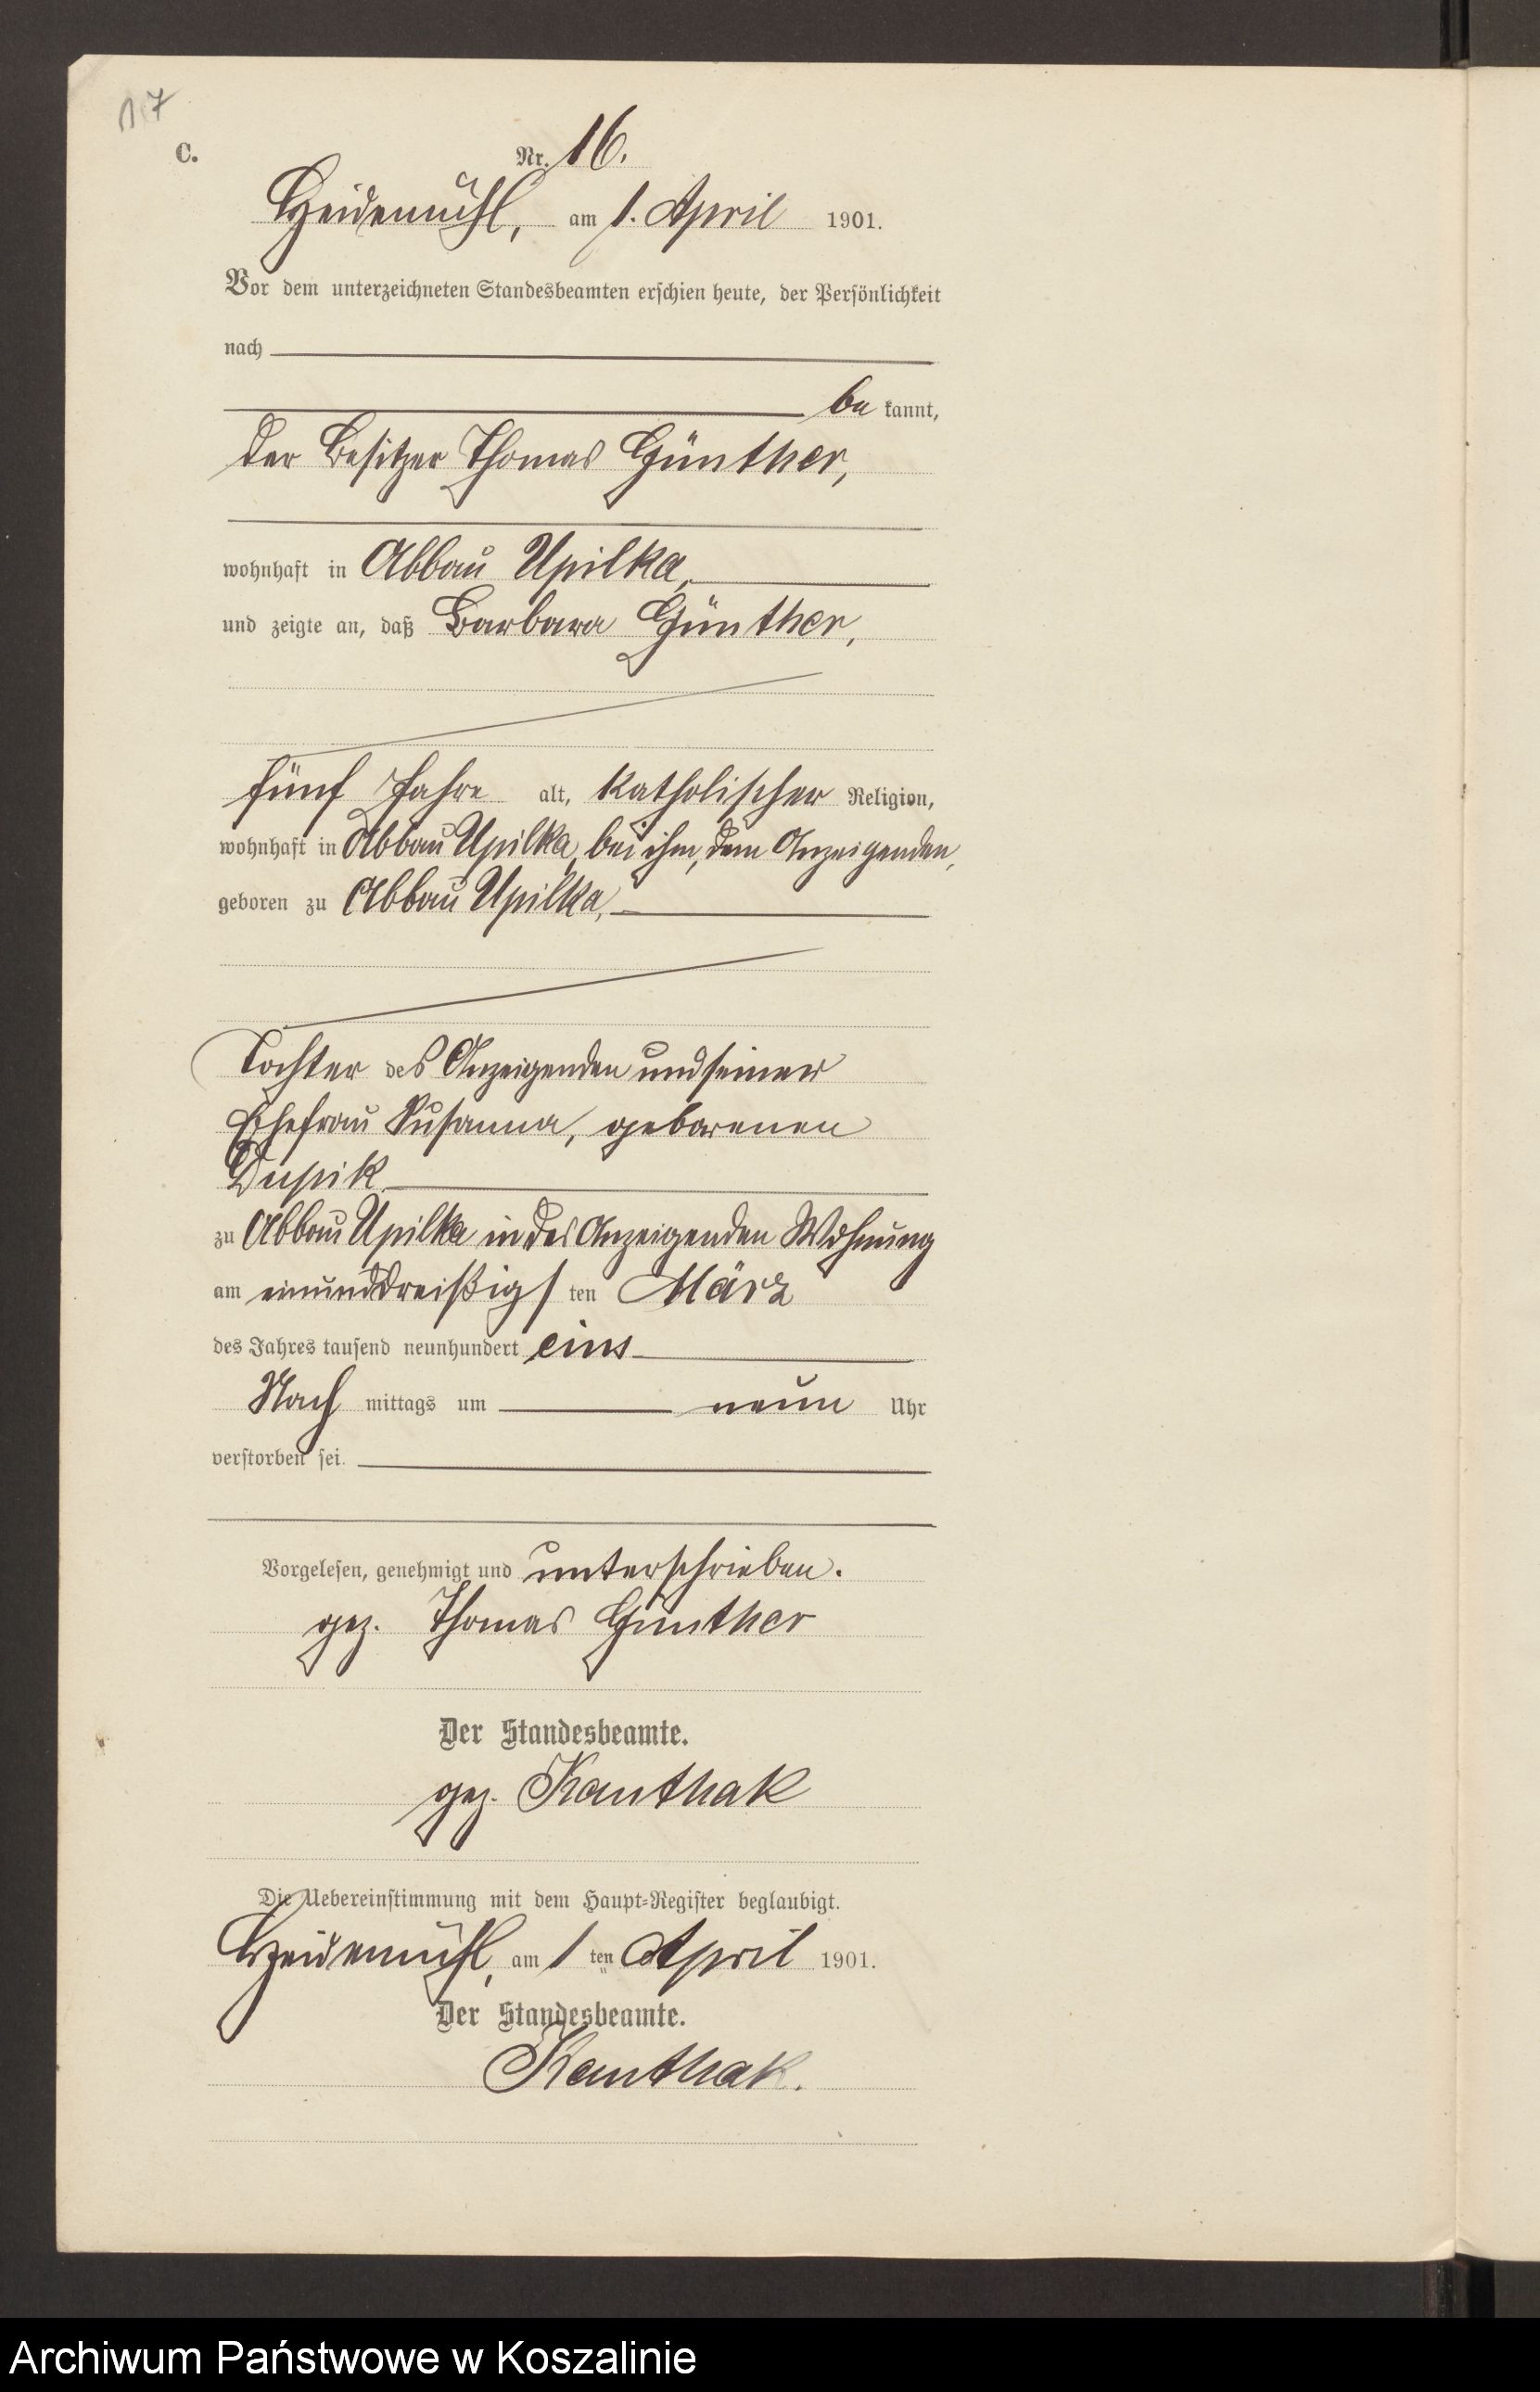 117
C.
Nr. 16.
Heidemühl, am 1. April 1901.
Vor dem unterzeichneten Standesbeamten erschien heute, der Persönlichkeit
nach
be kannt,
der Besitzer Thomas Günther,
wohnhaft in Abbau Upilka,
und zeigte an, daß Barbara Günther,
fünf Jahre alt, katholischer Religion,
wohnhaft in Abbau Upilka, bei ihm, dem Anzeigenden,
geboren zu Abbau Upilka,
Tochter des Anzeigenden und seiner
Ehefrau Susanna, geborenen
zu Abbau Upilka in des Anzeigenden Wohnung
am einunddreißigs ten März
des Jahres tausend neunhundert eins
Nach mittags um neun Uhr
verstorben sei.
Vorgelesen, genehmigt und unterschrieben.
gez. Thomas Günther
Der Standesbeamte.
gez. Kanthak
Die Uebereinstimmung mit dem Haupt-Register beglaubigt.
Heidemühl, am 1 ten April 1901.
Der Standesbeamte.
Kanthak.
Archiwum Państwowe w Koszalinie